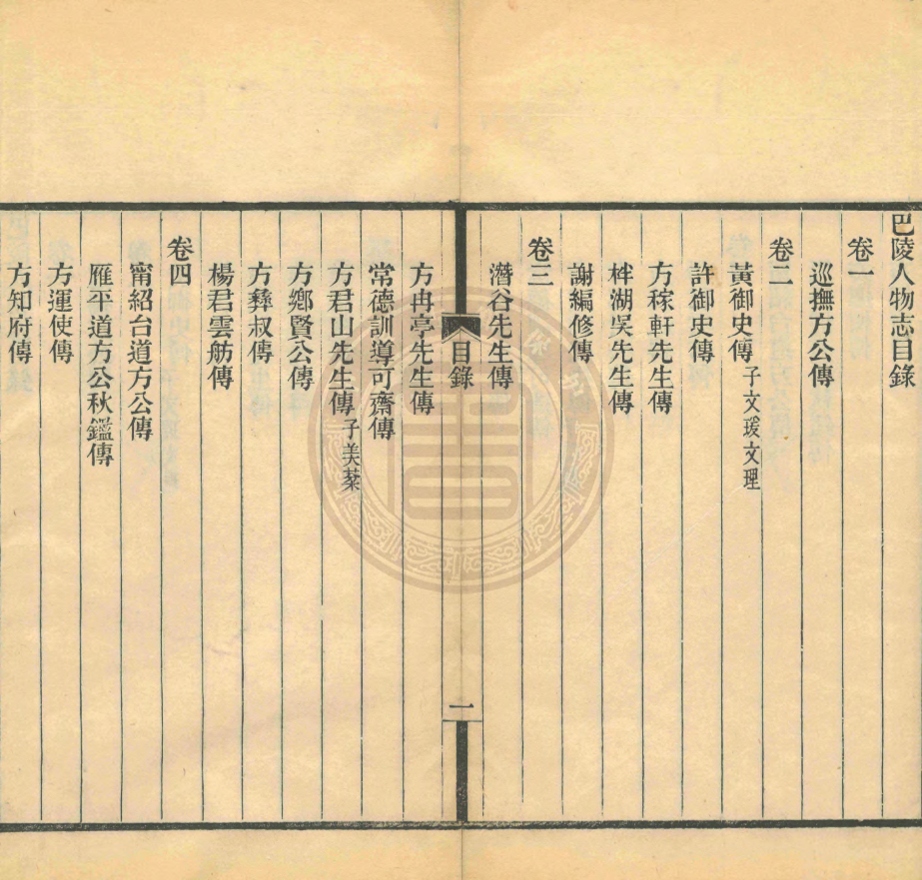 巴陵人物志目錄
卷一
巡撫方公傳
卷二
黃御史傳子文瑗文理
許御史傳
方稼軒先生傳
柈湖吳先生傳
謝編修傳
卷三
潛谷先生傳
目錄
一
方冉亭先生傳
常德訓導可齋傳
方君山先生傳子美棻
方鄉賢公傳
方彝叔傳
楊君雲舫傳
卷四
甯紹台道方公傳
雁平道方公秋鑑傳
方運使傳
方知府傳